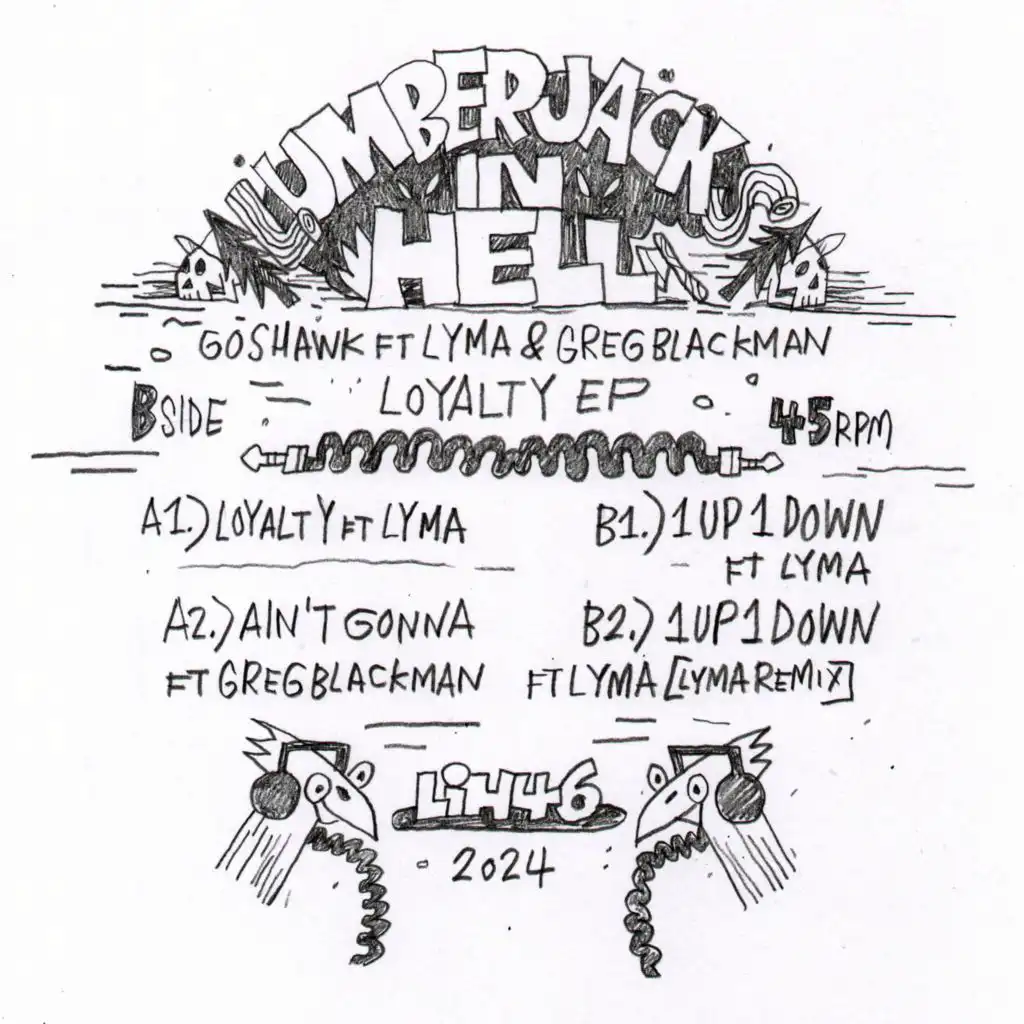 LUMBERJACKS
IN
HELL
GOSHAWK FT LYMA & GREG BLACKMAN
LOYALTY EP
B SIDE
45 RPM
A1.) LOYALTY FT LYMA
A2.) AIN'T GONNA
FT GREG BLACKMAN
B1.) 1 UP 1 DOWN
FT LYMA
B2.) 1 UP 1 DOWN
FT LYMA [LYMA REMIX]
LiH46
2024